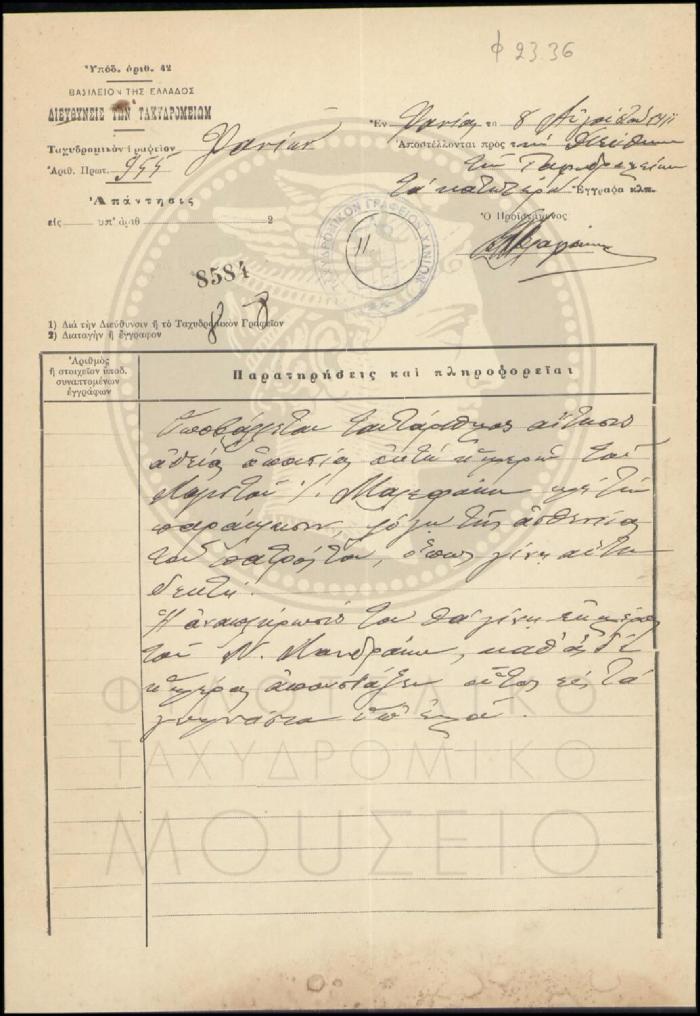 φ 23.36
Ὑπόδ. ἀριθ. 42
ΒΑΣΙΛΕΙΟΝ ΤΗΣ ΕΛΛΑΔΟΣ
ΔΙΕΥΘΥΝΣΙΣ ΤΩΝ ΤΑΧΥΔΡΟΜΕΙΩΝ
Ταχυδρομικὸν Γραφεῖον Χανίων
Ἀριθ. Πρωτ. 955
Ἀπάντησις
εἰς ὑπ' ἀριθ 2
Ἐν Χανίοις τῇ 8
Ἀποστέλλονται πρὸς τὴν Διεύθυνσιν
τῶν Ταχυδρομείων
τὰ κατωτέρω Ἔγγραφα κλπ.
Ὁ Προϊστάμενος
ΤΑΧΥΔΡΟΜΙΚΟΝ ΓΡΑΦΕΙΟΝ ΧΑΝΙΩΝ
11
8584
1) Διὰ τὴν Διεύθυνσιν ἢ τὸ Ταχυδρομικὸν Γραφεῖον
2) Διαταγὴν ἢ ἔγγραφον
Ἀριθμὸς
ἢ στοιχεῖον ὑποδ.
συναπτομένων
ἐγγράφων
Παρατηρήσεις καὶ πληροφορεῖαι
Ὑποβάλλεται ταὐτάριθμος αἴτησις
ἀδείας ἀπουσίας
τοῦ
μὲ τὴν
παράκλησιν, λόγῳ τῆς ἀσθενείας
τοῦ πατρός του, ὅπως γίνῃ αὕτη
δεκτή.
Ἡ ἀναπλήρωσίς του θὰ γίνῃ
τοῦ Ν. Μανδράκη, καθ' ἃς δὲ
ἡμέρας οὗτος εἰς τὰ
γυμνάσια ὑπ' ἐμοῦ.
ΦΙΛΟΤΕΛΙΚΟ
ΤΑΧΥΔΡΟΜΙΚΟ
ΜΟΥΣΕΙΟ